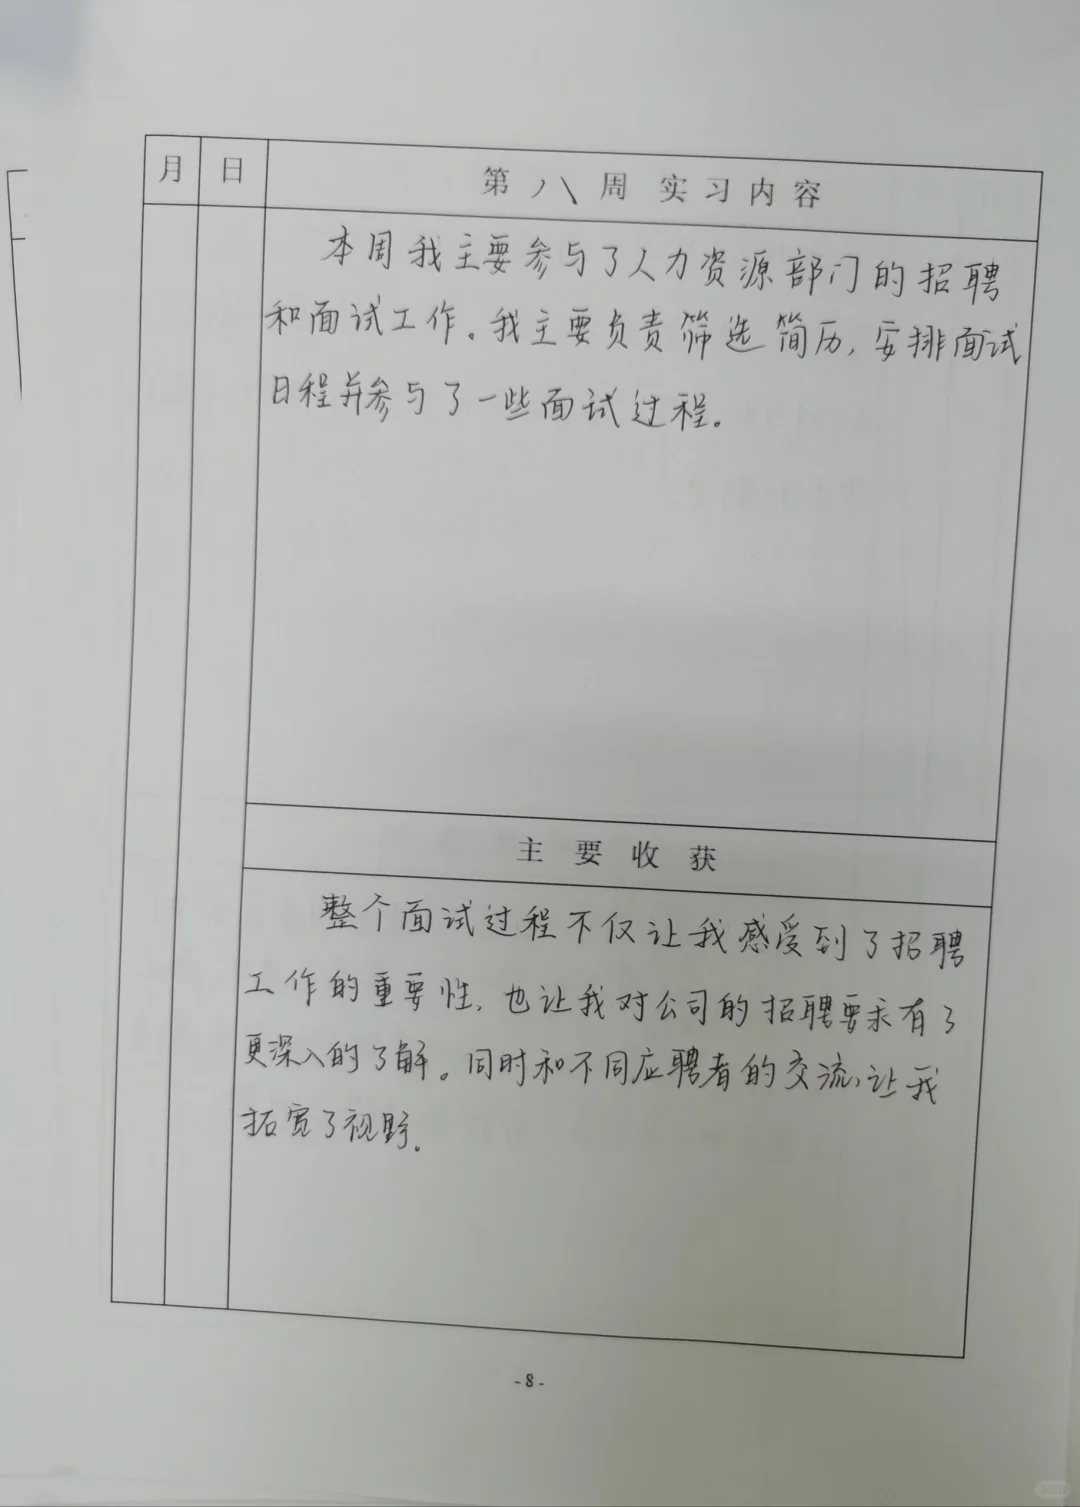 月 日 第 八 周 实习内容
本周我主要参与了人力资源部门的招聘
和面试工作。我主要负责筛选简历,安排面试
日程并参与了一些面试过程。
主要收获
整个面试过程不仅让我感受到了招聘
工作的重要性,也让我对公司的招聘要求有了
更深入的了解。同时和不同应聘者的交流,让我
拓宽了视野.
-8-